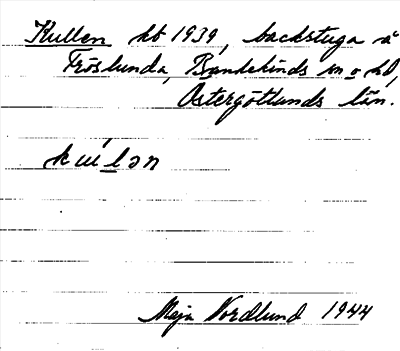 Kullen kb 1939, backstuga å
Fröslunda, Bankekinds sn o hd,
Östergötlunds län.
kɯ́lən
Maja Nordlund 1944